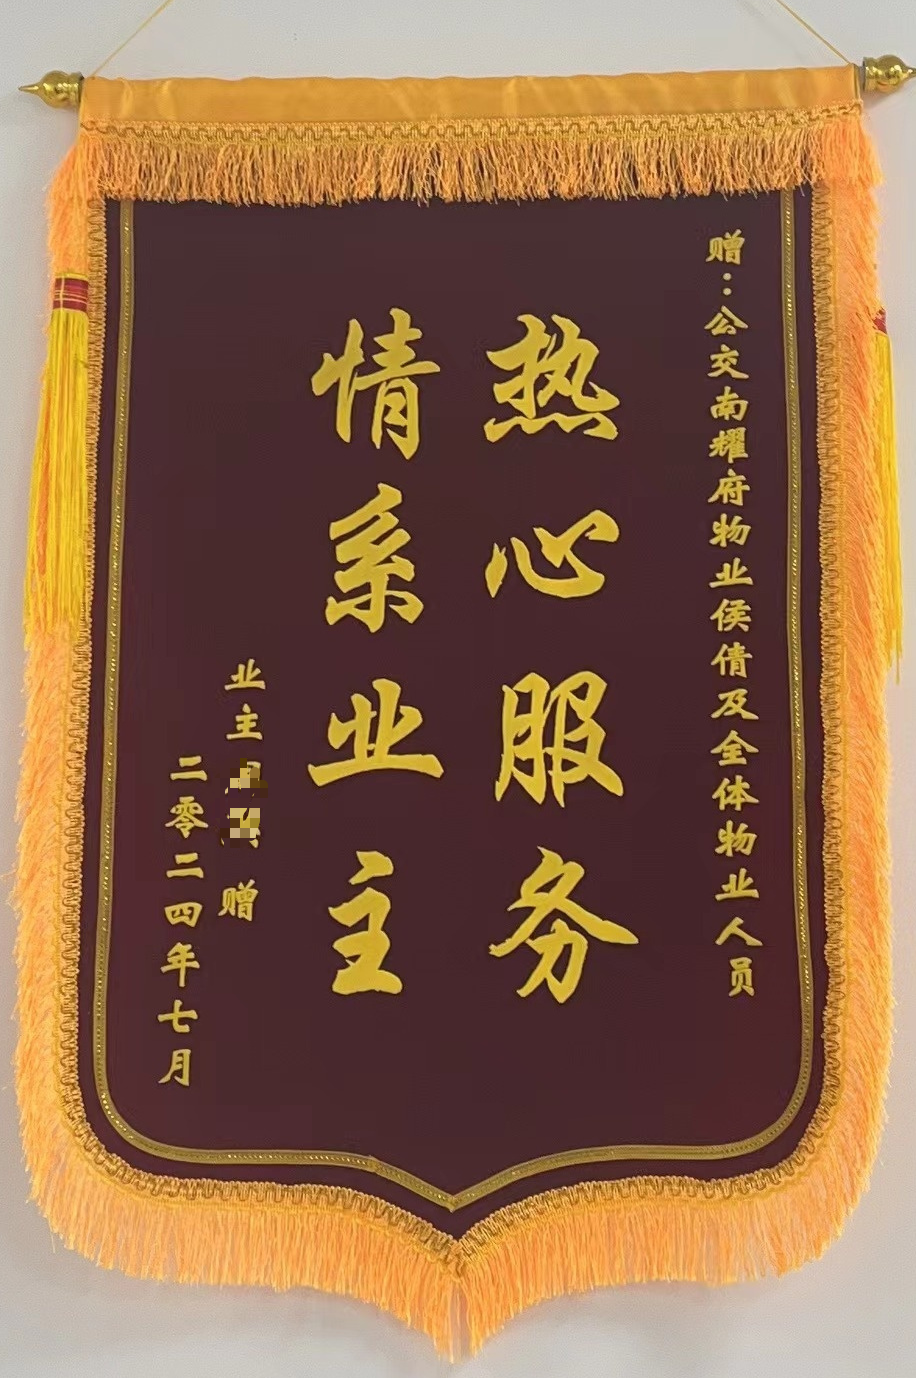 赠：公交南耀府物业侯倩及全体物业人员
热心服务
情系业主
业主 赠
二零二四年七月